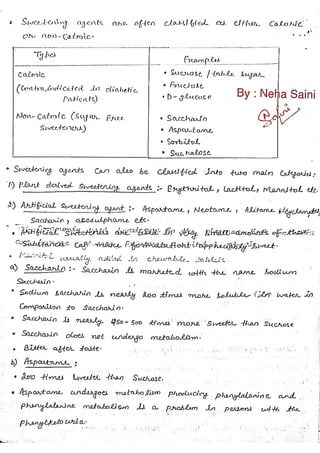 • Sweetening agents are often classified as either Caloric
or non-Caloric.
Types
Examples
Caloric
(Contra indicated in diabetic
Patients)
• Sucrose / table sugar
• Fructose
• D-glucose
Non-Caloric (Sugar Free
Sweeteners)
• Saccharin
• Aspartame
• Sorbitol
• Sucralose
By : Neha Saini
Saini
• Sweetening agents can also be Classified into two main Categories:
1) Plant derived Sweetening agents :- Erythritol, Lactitol, Mannitol etc.
2) Artificial Sweetening agent :- Aspartame, Neotame, Alitame,
Saccharin, acesulphame etc.
• Artificial Sweeteners are used in very small amounts of these
Substances can make
• usually added in chewable tablets.
a) Saccharin :- Saccharin is marketed with the name Sodium
Saccharin.
• Sodium saccharin is nearly 200 times more soluble in water in
Comparison to Saccharin.
• Saccharin is nearly 450-500 times more Sweeter than Sucrose
• Saccharin does not undergo metabolism.
• Bitter after taste.
b) Aspartame :
• 200 times Sweeter than Sucrose.
• Aspartame undergoes metabolism producing phenylalanine and
phenylalanine metabolism is a problem in persons with the
phenylketouria.